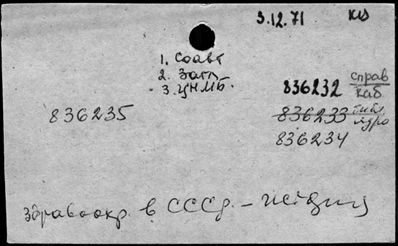 3.12.71
1. Соавт
2. Загл
3. ЦНМБ.
836232 справ каб
836235
836233
836234
Здравоохр. в СССР. -